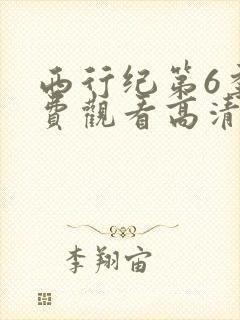 西行纪第6季
費觀看高清
李翔宙